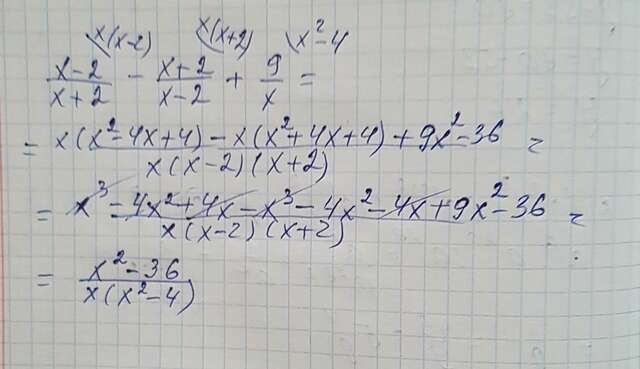 x(x-2) x(x+2) x²-4
(x-2)/(x+2) - (x+2)/(x-2) + 9/x =
= (x(x²-4x+4) - x(x²+4x+4) + 9x²-36)/(x(x-2)(x+2)) =
= (x³-4x²+4x-x³-4x²-4x+9x²-36)/(x(x-2)(x+2)) =
= (x²-36)/(x(x²-4))